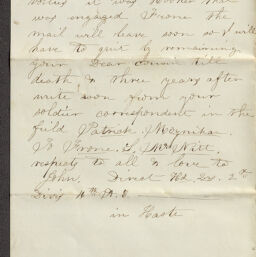 it was worker that
was engaged Frone the
mail will leave soon so I will
have to quit by remaining
your Dear Cousin till
death & three years after
write soon from your
soldier correspondent in the
field Patrick
To Frone. S. Witt
respects to all & love to
John. Direct Hd. Qr. 2nd
Divis 4th A. C.
in Haste